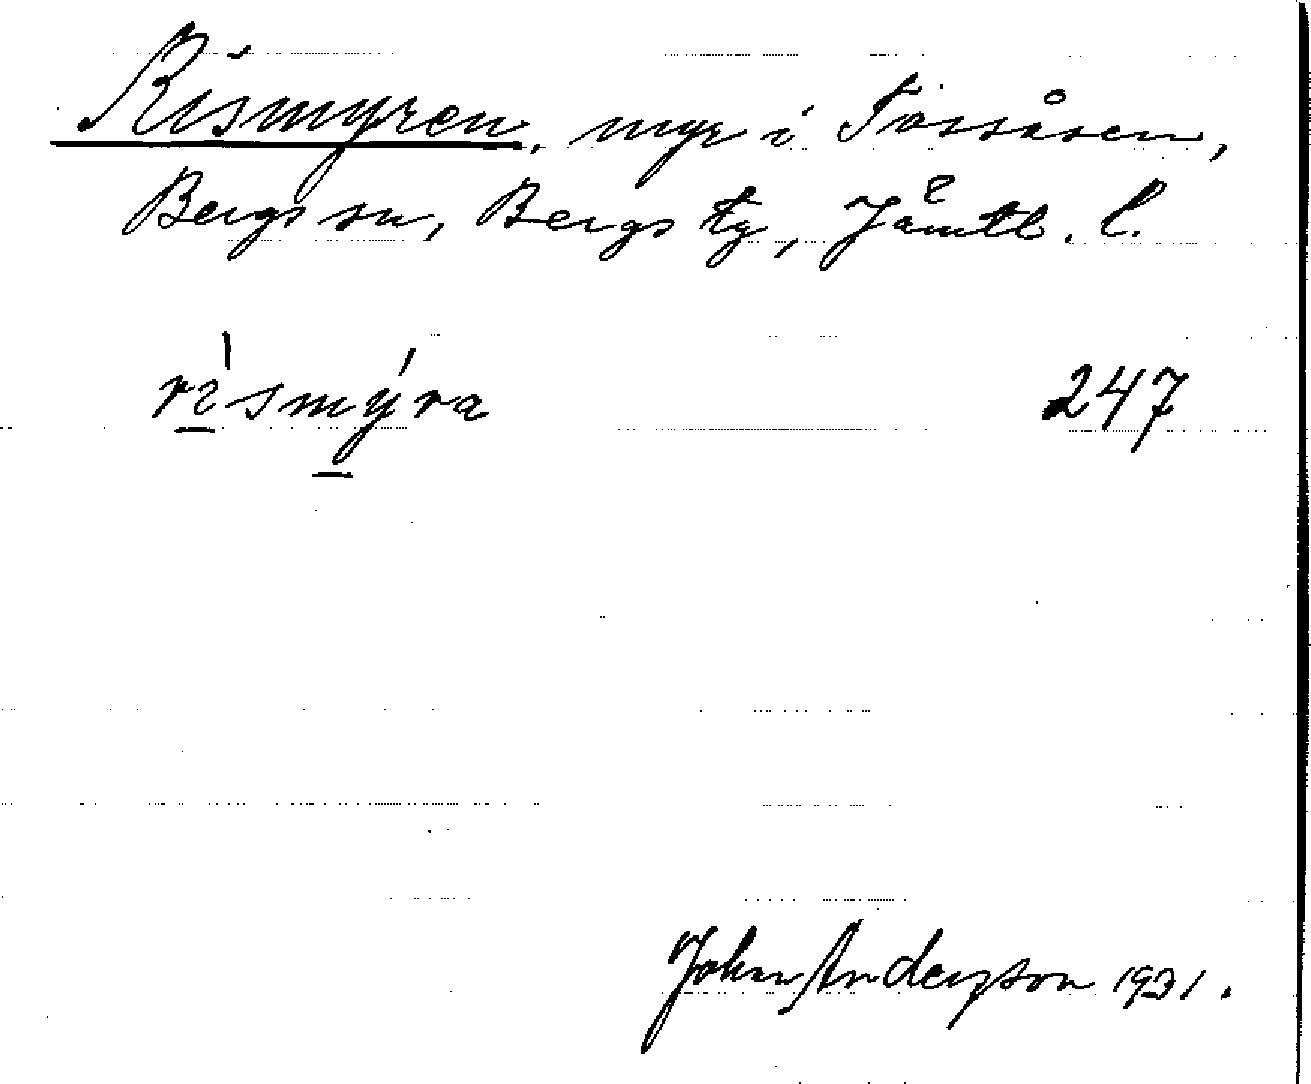 Rismyren, myr i Fossåsen,
Bergs sn, Bergs tg, Jämtl. l.
rı̀smýra 247
John Anderson 1931.